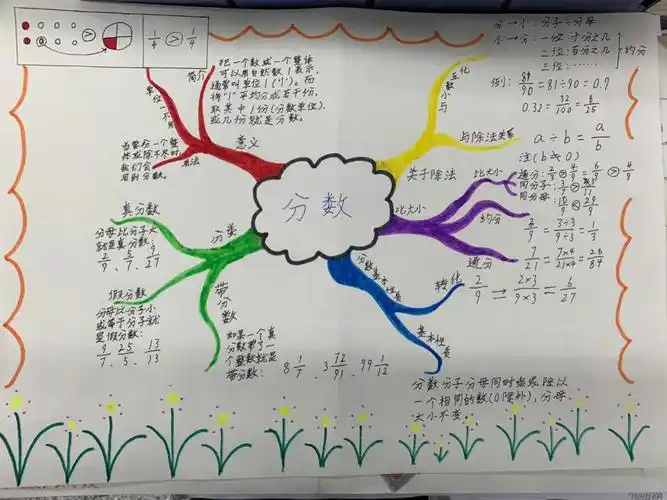 1/4 > 1/4
单位不同
简介
把一个数或一个整体
可以用自然数1表示,
通常叫单位1("1")。而
将"1"平均分成若干份,
取其中1份(分数单位),
或几份就是分数。
意义
当要分一个整
体或除不尽时
我们会
用到分数。
用法
分数
分类
真分数
分母比分子大
就是真分数:
2/9、5/7、9/27
假分数
分母比分子小
或等于分子就
是假分数:
9/7、25/5、13/13
带分数
如果一个真
分数带了一
个整数就是
带分数:
8 1/7、3 72/91、99 1/12
与小数互化
分→小:分子÷分母
小→分:一位:十分之几
二位:百分之几
三位:……
约分
例:81/90=81÷90=0.9
0.32=32/100=8/25
与除法关系
关于除法
a÷b=a/b
注(b≠0)
比大小
比大小
通分:2/3>4/9=6/9>4/9
同分子:
同分母:
约分
3/9=3÷3/9÷3=1/3
通分
7/21=7×4/21×4=28/84
分数基本性质
转化
2/9→2×3/9×3=6/27
基本性质
分数分子分母同时乘或除以
一个相同的数(0除外),分母
大小不变。